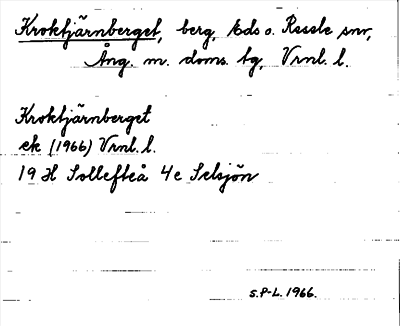 Kroktjärnberget, berg, Eds o. Ressele snr,
Ång. m. doms. tg, Vrnl. l.
Kroktjärnberget
ek (1966) Vrnl. l.
19 H Sollefteå 4c Selsjön
S.P-L. 1966.